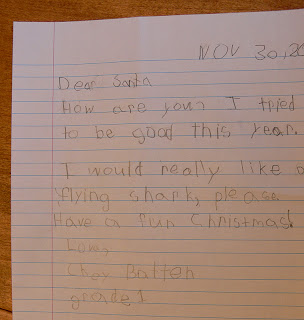 NOV 30, 20
Dear Santa
How are you? I tried
to be good this year.
I would really like a
flying shark, please.
Have a fun Christmas!
Love,
Batten
grade 1